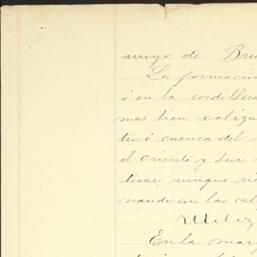 arroyo de Bru
La formación
ó en la cordillera
mas bien caliza
ó cuenca del
el Oriente y Sur
aunque si
nando en las cal
En la mar